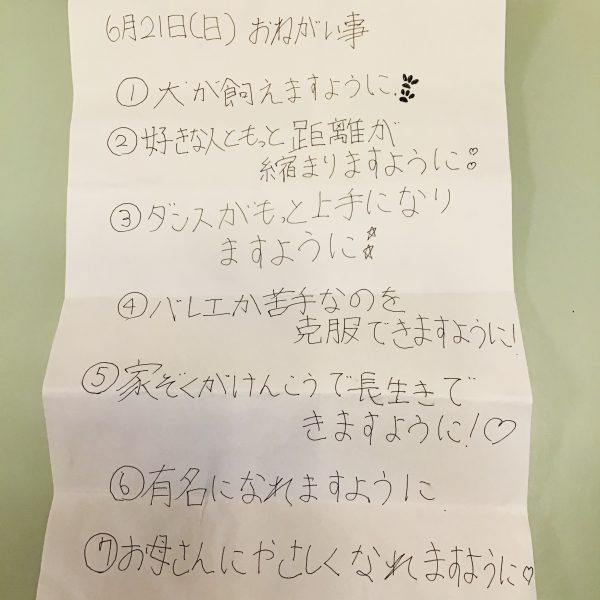 6月21日(日) おねがい事
①犬が飼えますように
②好きな人ともっと距離が
縮まりますように
③ダンスがもっと上手になり
ますように
④バレエが苦手なのを
克服できますように!
⑤家ぞくがけんこうで長生きで
きますように!♡
⑥有名になれますように
⑦お母さんにやさしくなれますように♡